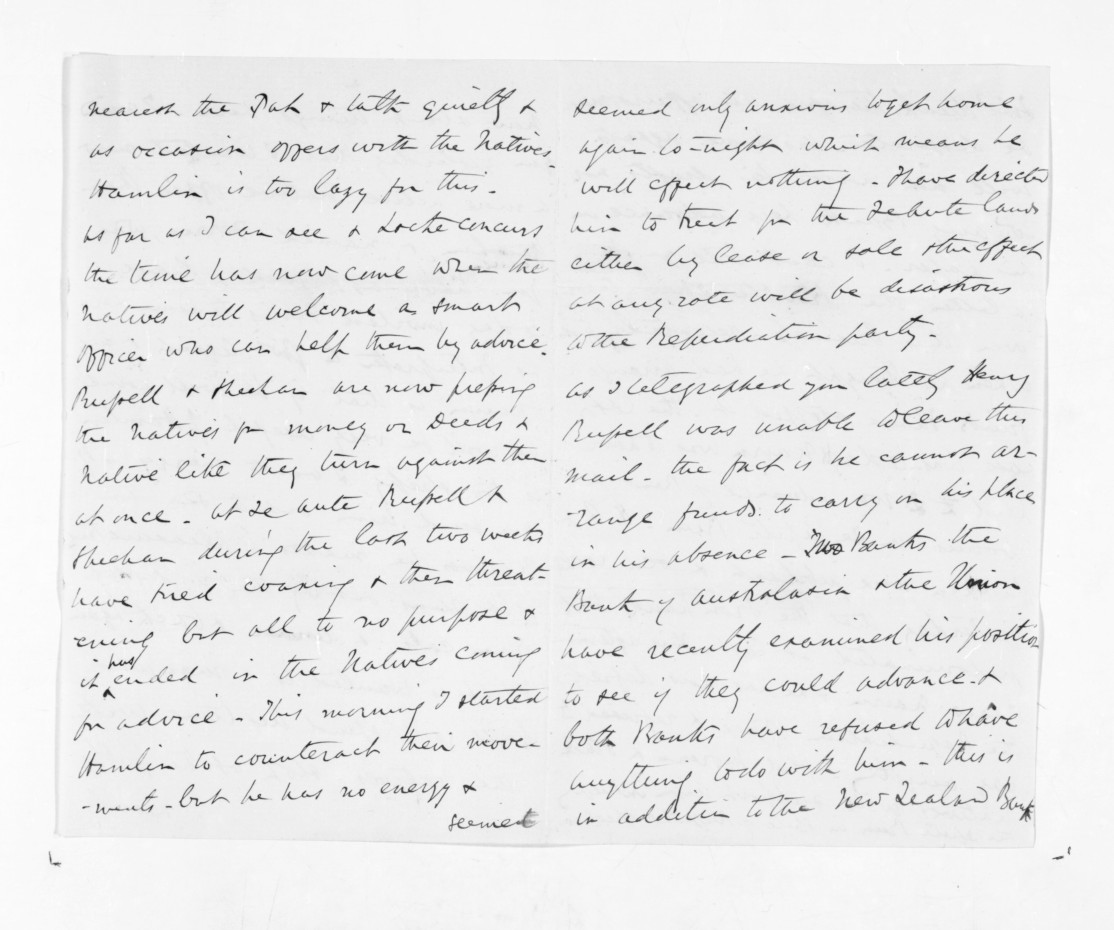 nearest the Pah & talk quietly &
as occasion offers with the Natives.
Hamlin is too lazy for this -
as far as I can see & Locke concurs
the time has now come when the
Natives will welcome a smart
officer who can help them by advice.
Russell & Sheehan are now pressing
the Natives for money or Deeds &
Native like they turn against them
at once - at Te Aute Russell &
Sheehan during the last two weeks
have tried coaxing & then threat-
ening but all to no purpose &
it has ended in the Natives coming
for advice - This morning I started
Hamlin to counteract their move-
-ments - but he has no energy &
seemed
seemed only anxious to get home
again to-night which means he
will effect nothing - I have directed
him to treat for the Te Aute lands
either by lease or sale & the effect
at any rate will be disastrous
to the Repudiation party -
as I telegraphed you lately Henry
Russell was unable to leave this
mail - the fact is he cannot ar-
-range funds to carry on his place
in his absence - Two Banks the
Bank of Australasia & the Union
have recently examined his position
to see if they could advance - &
both Banks have refused to have
anything to do with him - this is
in addition to the New Zealand Bank